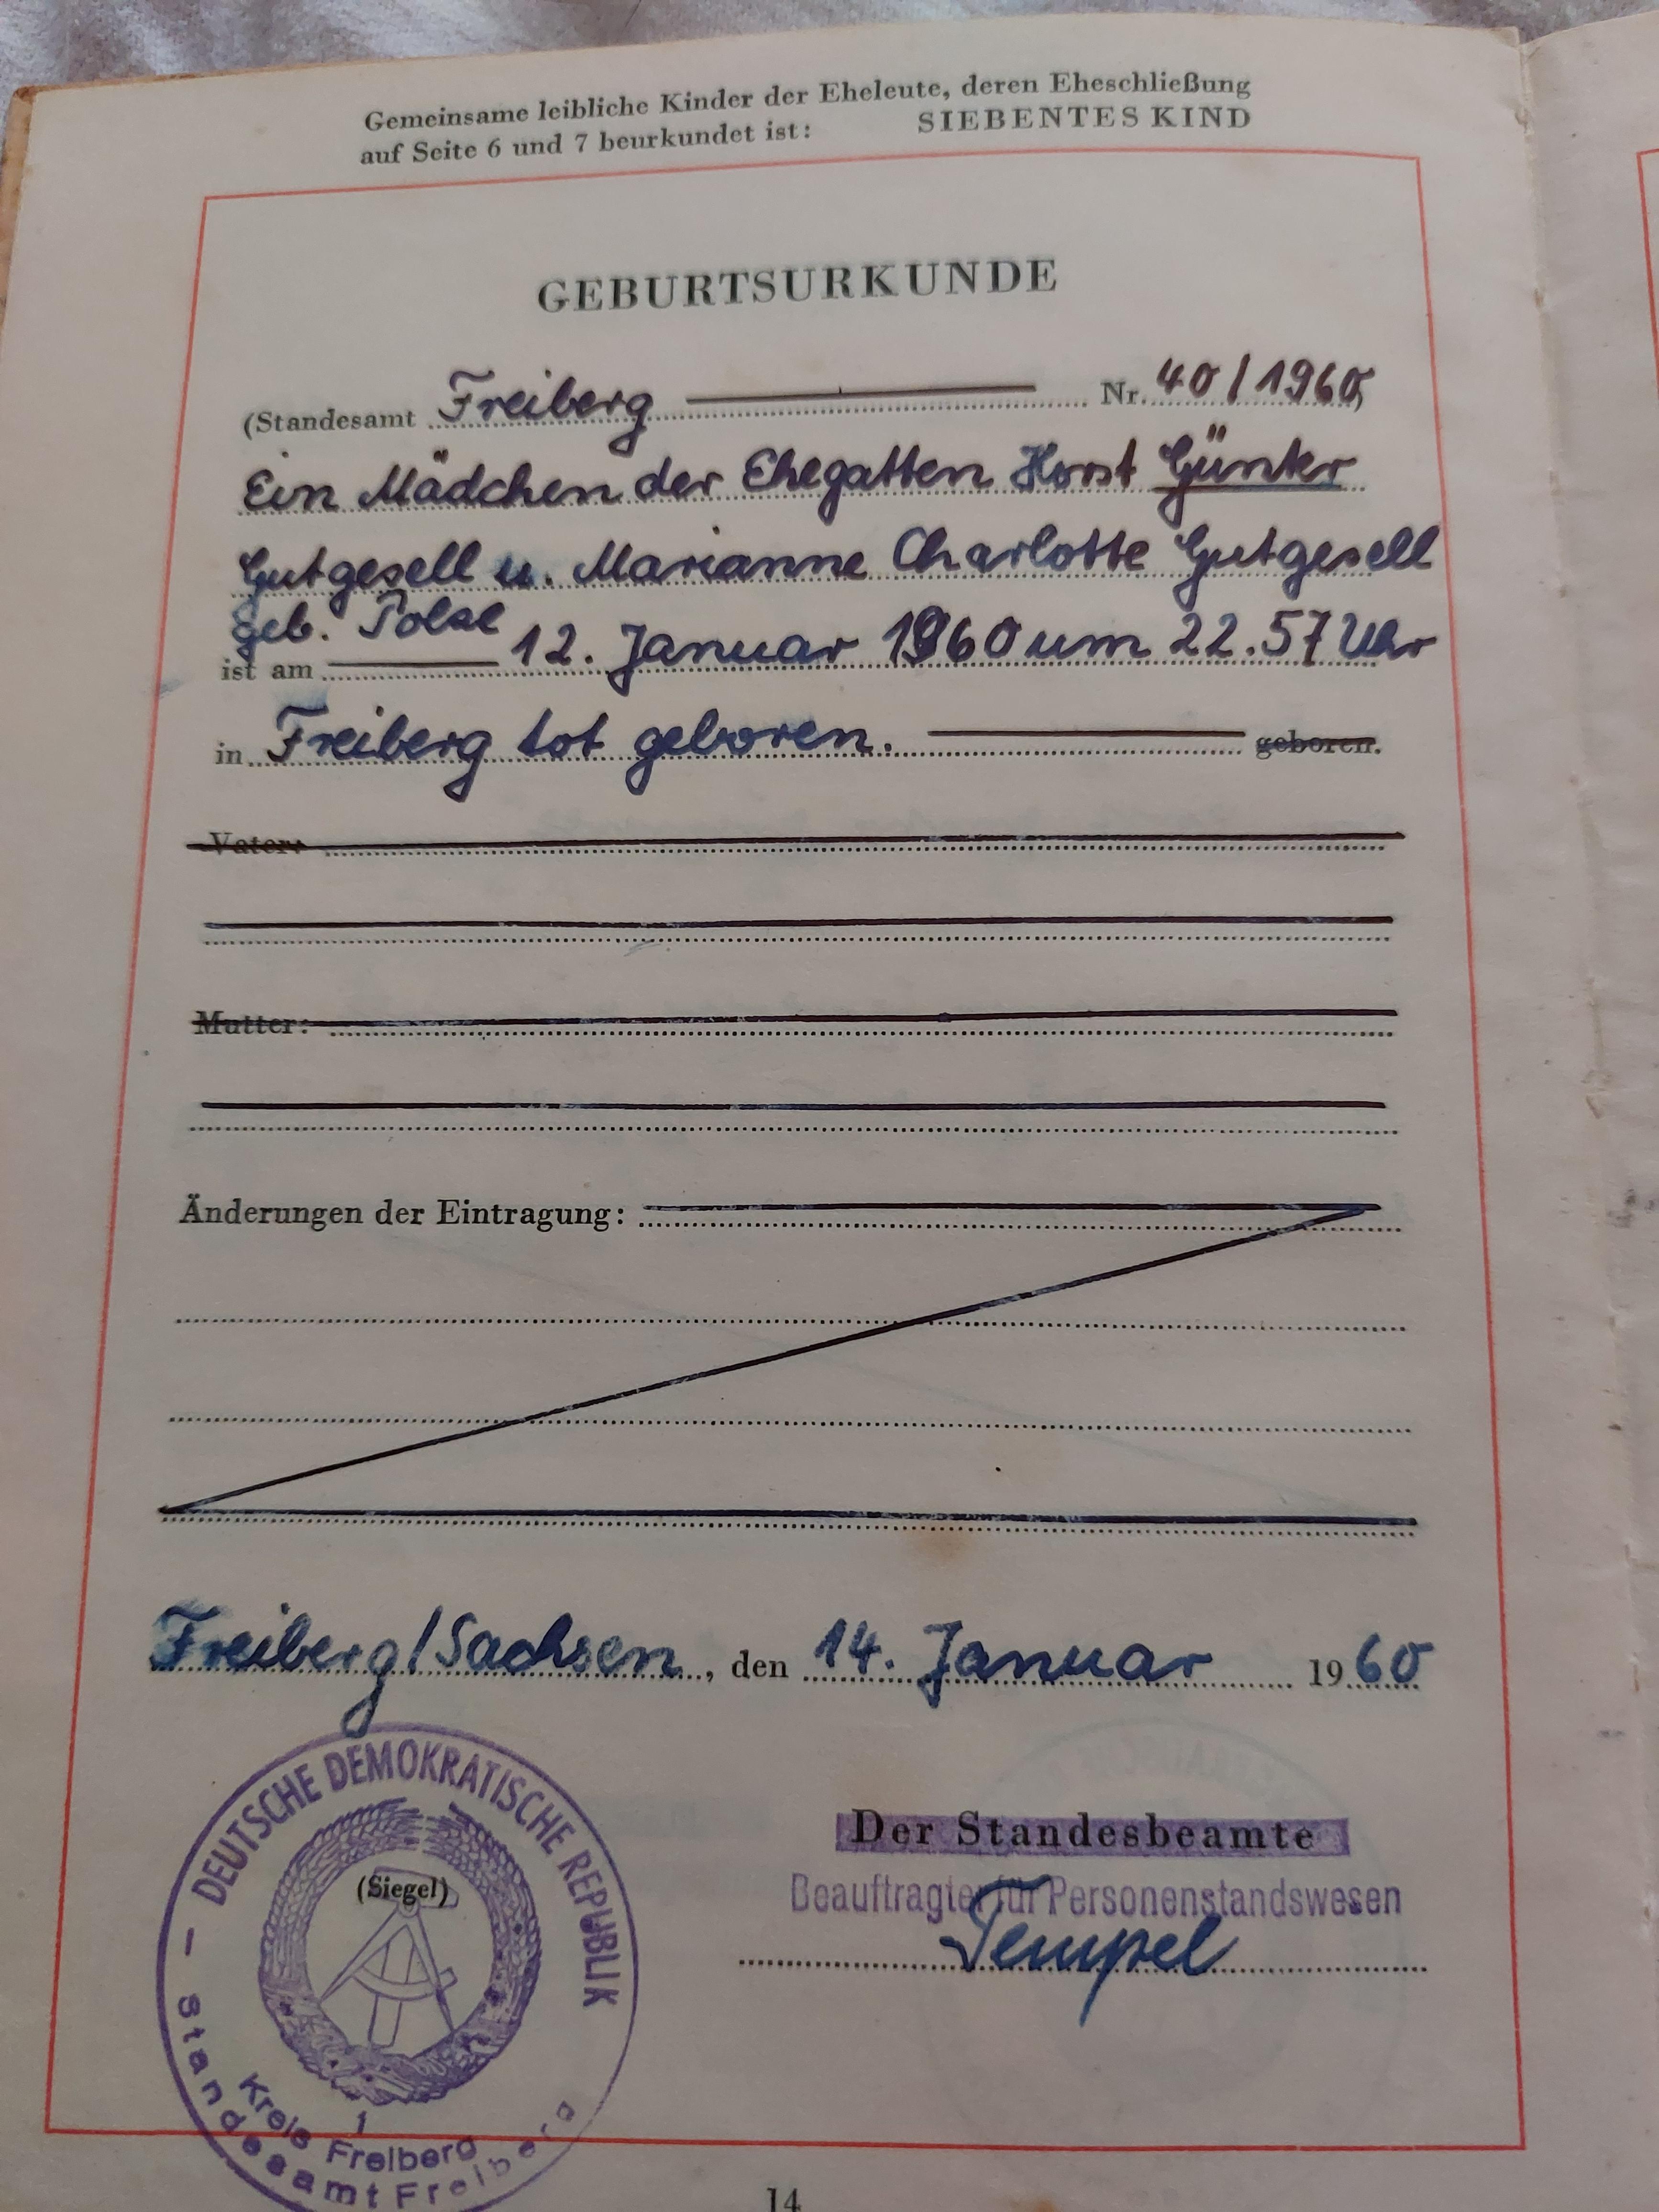 Gemeinsame leibliche Kinder der Eheleute, deren Eheschließung
auf Seite 6 und 7 beurkundet ist: SIEBENTES KIND
GEBURTSURKUNDE
(Standesamt Freiberg Nr. 40/1960)
Ein Mädchen der Ehegatten Horst Günter
Gutgesell u. Marianne Charlotte Gutgesell
geb.
ist am 12. Januar 1960 um 22.57 Uhr
in Freiberg tot geboren. geboren.
Vater:
Mutter:
Änderungen der Eintragung:
Freiberg/Sachsen, den 14. Januar 1960
DEUTSCHE DEMOKRATISCHE REPUBLIK
(Siegel)
1
Kreis Freiberg
Standesamt Freiberg
Der Standesbeamte
Beauftragter für Personenstandswesen
Tempel
14